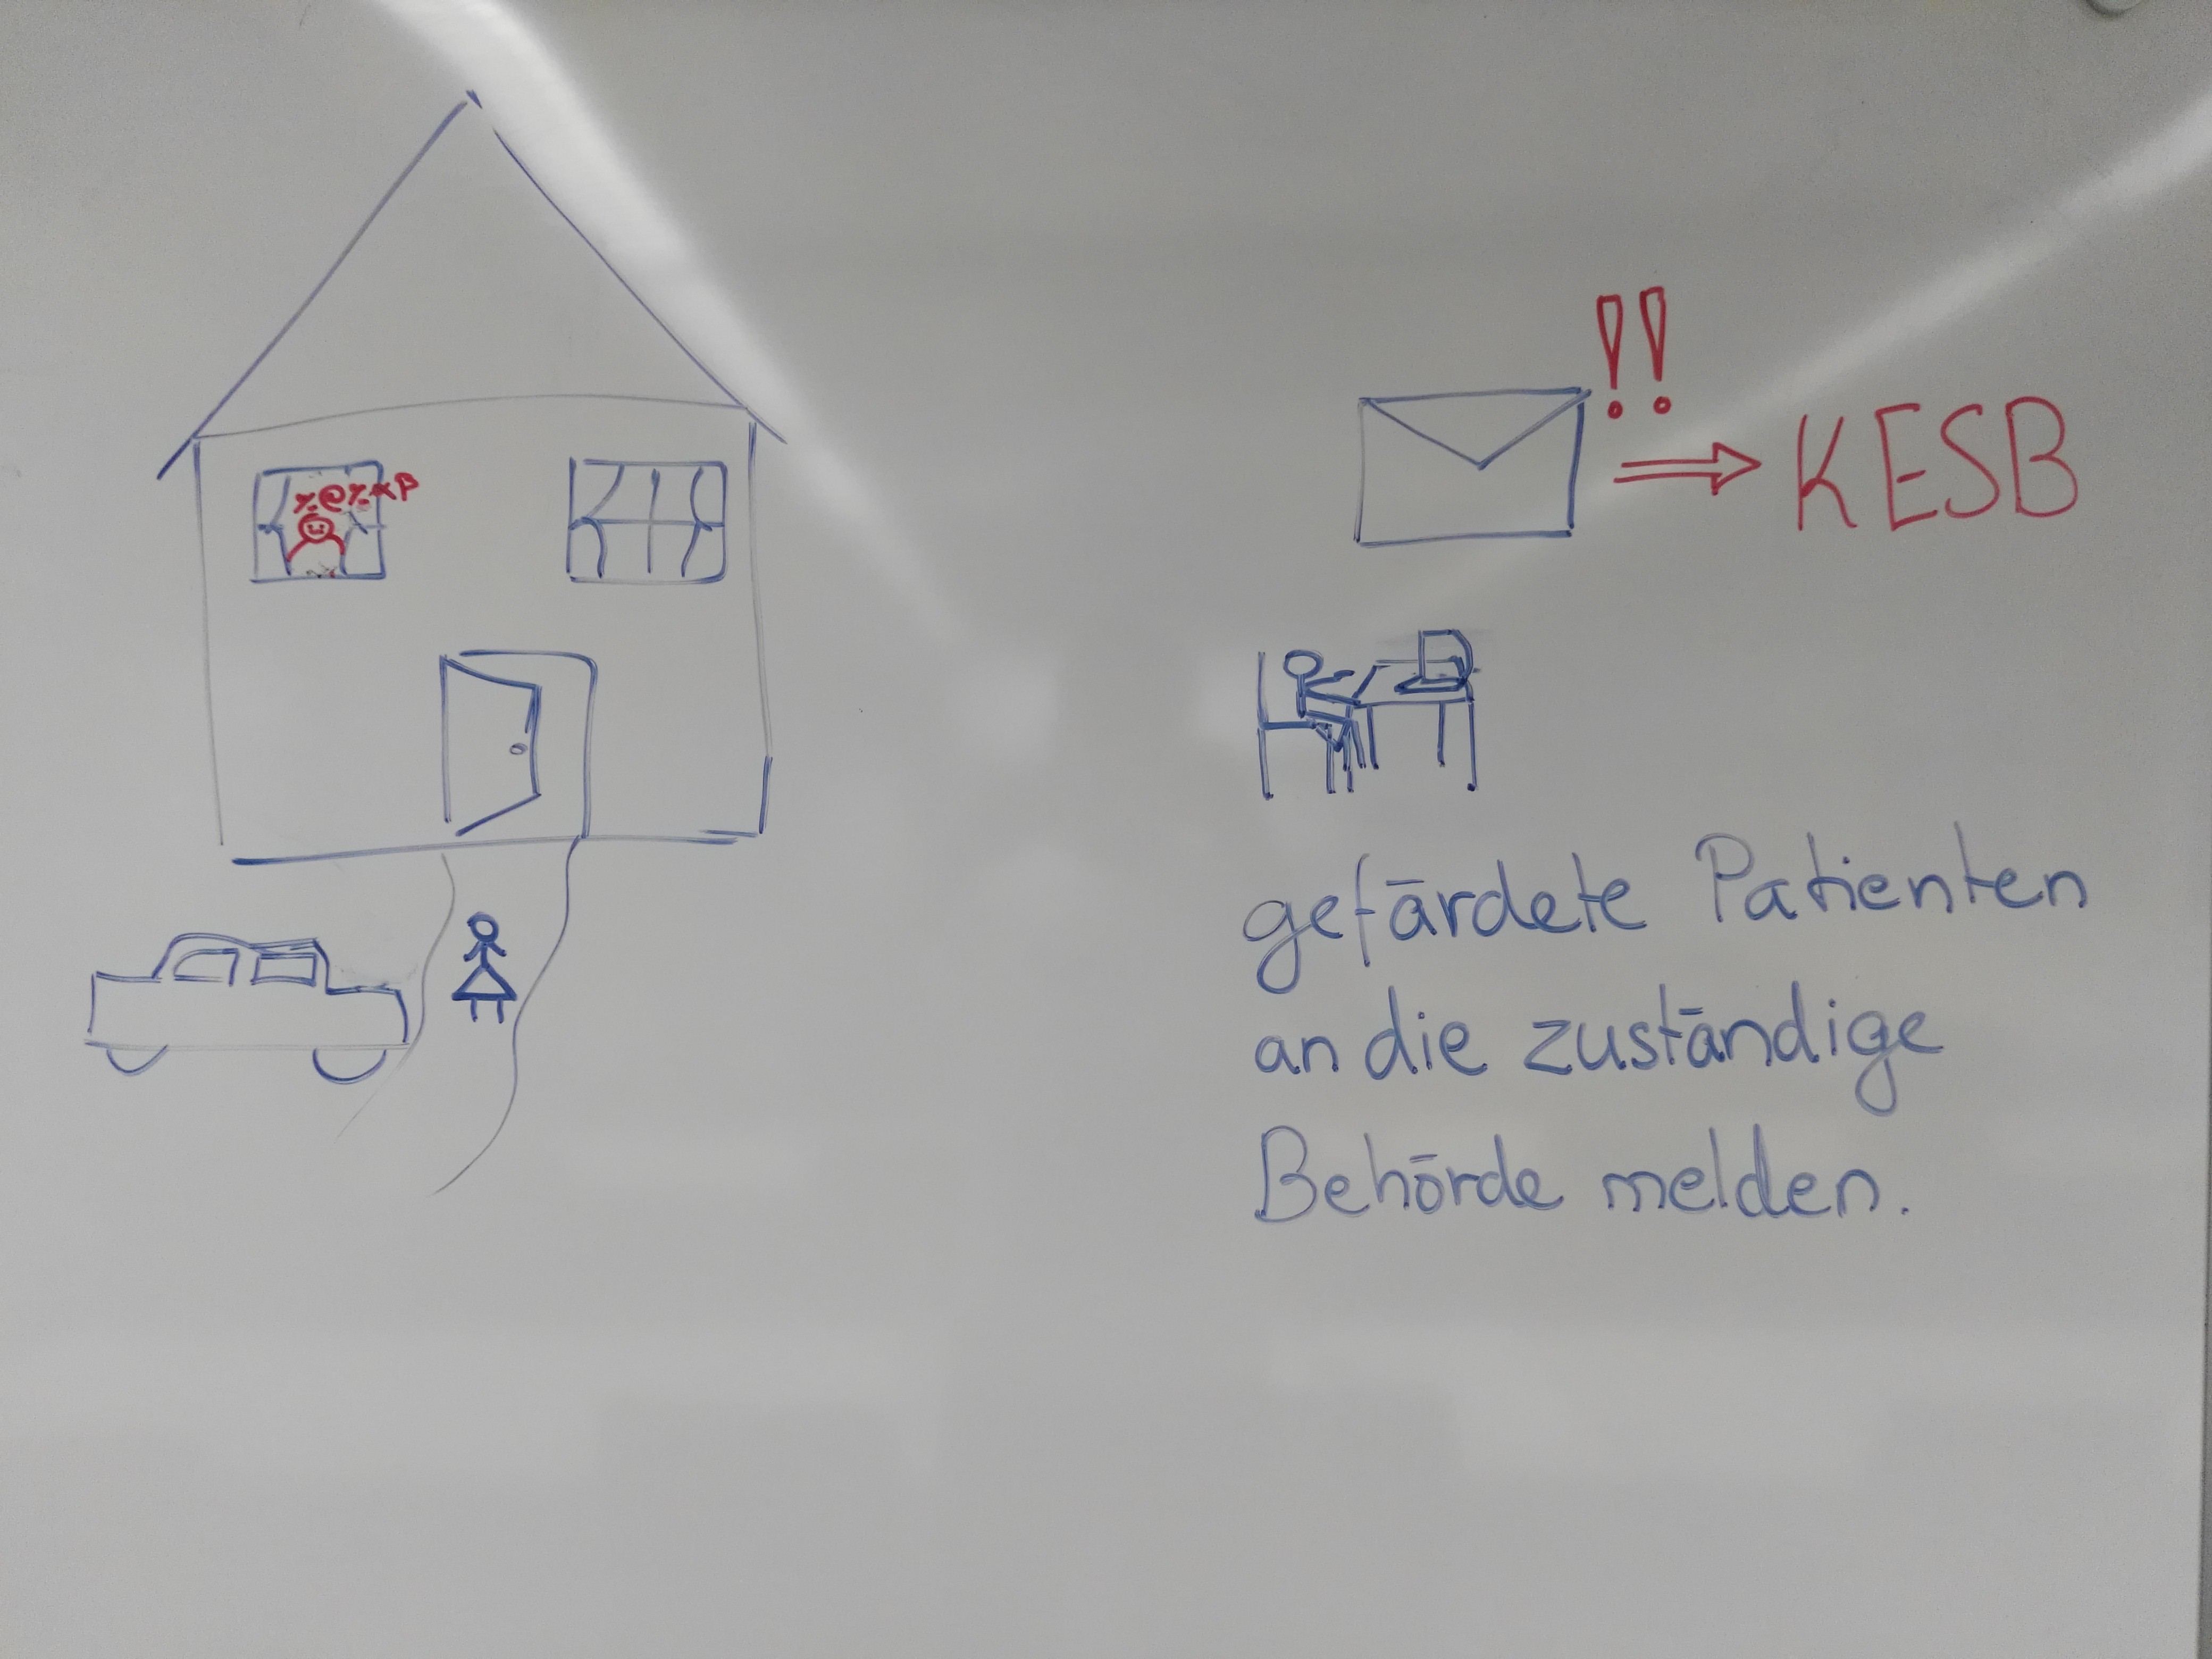 %@%*P
!!
KESB
gefärdete Patienten
an die zuständige
Behörde melden.